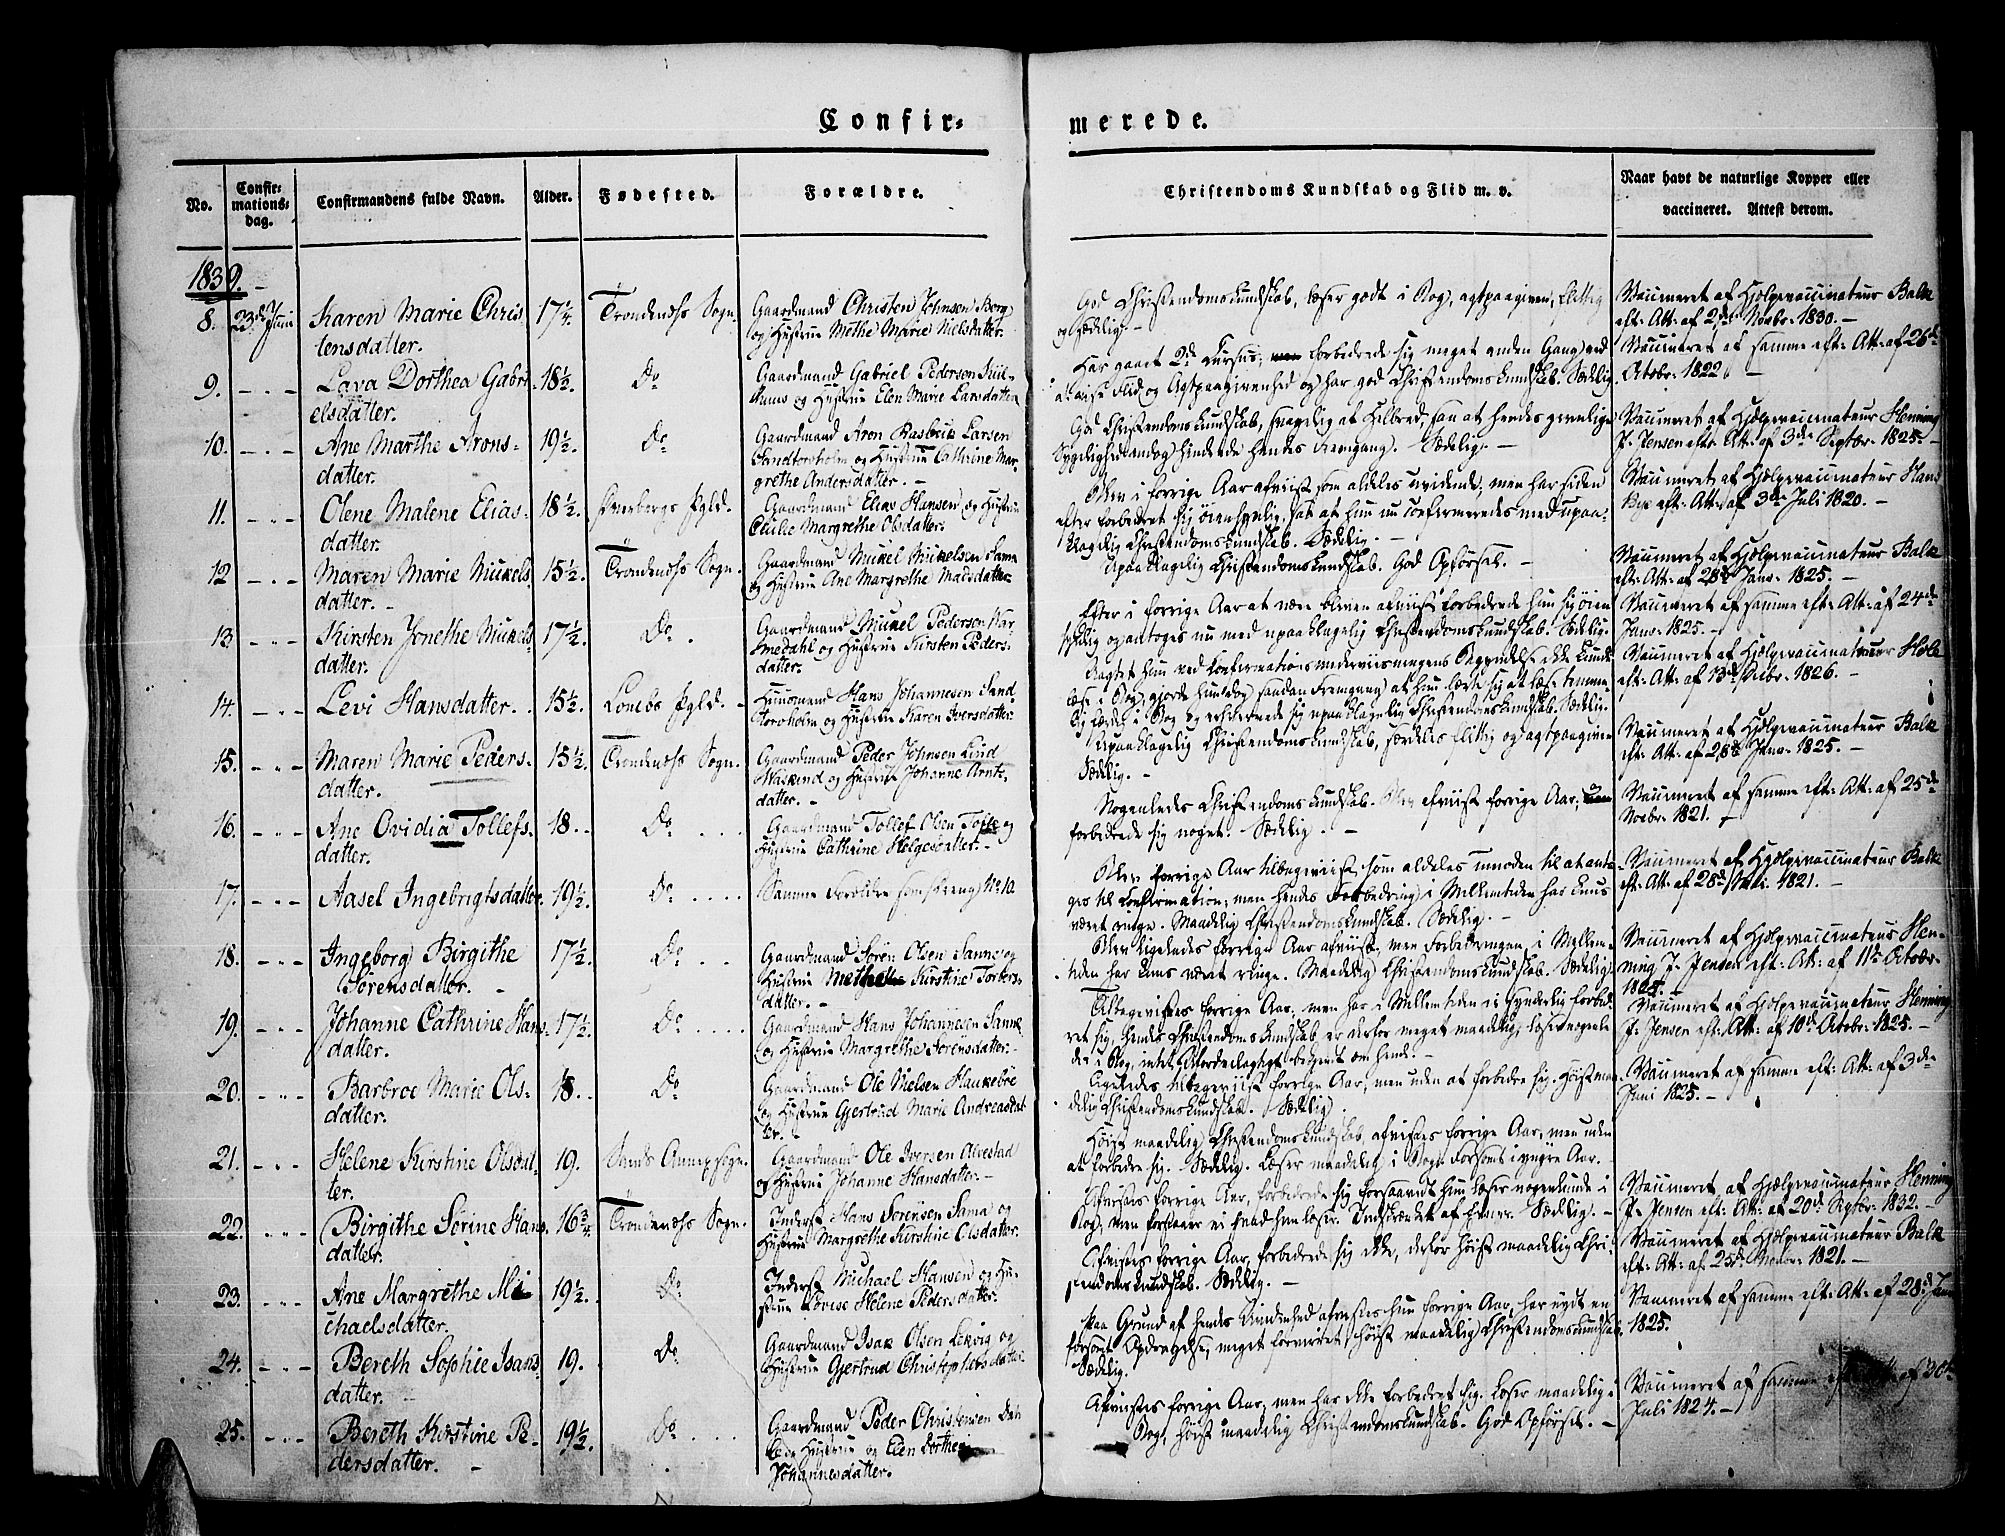 Confir-
merede.
No.
Confir-
mations-
dag.
Confirmandens fulde Navn.
Alder.
Fødested.
Forældre.
Christendoms Kundskab og Flid m. v.
Naar havt de naturlige Kopper eller
vaccineret. Attest derom.
1839.
8. 23de Juni Karen Marie Chris- 17¼. Trondenæs Sogn. Gaardmand Christen Johnsen Berg
tensdatter. og Hustrue Methe Marie Nielsdatter.
God Christendomskundskab, læser godt i Bog, agtpaagiven, flittig
og sædelig. —
Vaccineret af Hjelpevaccinateur Balk
eft. Att. af 2den Novbr. 1830. —
9. — „ — Lava Dorthea Gabri- 18½. Do Gaardmand Gabriel Pedersen
elsdatter. og Hustrue Elen Marie Larsdatter
Har gaaet 2de Cursus; forbedrede sig meget anden Gang ved
Flid og Agtpaagivenhed og har god Christendomskundskab. Sædelig.
Vaccineret af samme eft. Att. af 26de
Octobr. 1822. —
10. — „ — Ane Marthe Arons- 19½. Do Gaardmand Aron Larsen
datter. Sandtorvholm og Hustrue Cathrine Mar-
grethe Andersdatter. —
God Christendomskundskab, svagelig af Helbred, saa at hendes
Sygelighed endog hindrede hendes Fremgang. Sædelig. —
Vaccineret af Hjelpevaccinateur Henning
J. Jensen efter Att. af 3de Septbr. 1825. —
11. — „ — Olene Malene Elias- 18½. Gaardmand Elias Hansen og Hustrue
datter. Margrethe Olsdatter.
Blev i forrige Aar afviist som aldeles uvidende, men har siden
efter forbedret sig øiensynlig, saa at hun nu confirmeredes med upaa-
klagelig Christendomskundskab. Sædelig. —
Vaccineret af Hjelpevaccinateur Hans
eft. Att. af 3de Juli 1820. —
12 — „ — Maren Marie Mickels- 15½. Trondenæs Sogn. Gaardmand Mickel Mickelsen Sama
datter. — og Hustrue Ane Margrethe Madsdatter
Upaaklagelig Christendomskundskab. God Opførsel. —
Vaccineret af Hjelpevaccinateur Balk
eft. Att. af 28de Janr. 1825. —
13. — „ — Kirsten Jonethe Mickels- 17½. Do. Gaardmand Mickel Pedersen
datter. og Hustrue Kirsten Peders-
datter.
Efter i forrige Aar at være bleven afviist forbedrede hun sig øien-
synlig og antoges nu med upaaklagelig Christendomskundskab. Sædelig.
Vaccineret af samme eft. Att. af 24de
Janr. 1825. —
14. — „ — Levi Hansdatter. 15½. Hans Johannesen Sand-
torvholm og Hustrue Karen Iversdatter.
Uagtet hun ved Confirmationsunderviisningens Begyndelse ikke kunde
læse i Bog, gjorde hun dog saadan Fremgang at hun lærte sig at læse temme-
lig i Bog og erhvervede sig upaaklagelig Christendomskundskab. Sædelig.
Vaccineret af Hjelpevaccinateur
eft. Att. af 13de 1826. —
15. — „ — Maren Marie Peders- 15½. Trondenæs Sogn. Gaardmand Peder Johnsen
datter. og Hustrue Johanne Arnts-
datter. —
Upaaklagelig Christendomskundskab, særdeles flittig og agtpaagiven
Sædelig. —
Vaccineret af Hjelpevaccinateur Balk
eft. Att. af 28de Janr. 1825. —
16. — „ — Ane Ovidia Tollefs- 18. Do Gaardmand Tollef Olsen og
datter. Hustrue Cathrine Helgesdatter. —
Nogenledes Christendomskundskab. Blev afviist forrige Aar,
forbedrede sig noget. Sædelig. —
Vaccineret af samme eft. Att. af 25de
Novbr. 1821. —
17. — „ — Aasel Ingebrigtsdatter. 19½. Do Samme Forældre
Blev forrige Aar tilbageviist, som aldeles umoden til at anta-
ges til Confirmation; men hendes Forbedring i Mellemtiden har kuns
været ringe. Maadelig Christendomskundskab. Sædelig. —
Vaccineret af Hjelpevaccinateur Balk
eft. Att. af 28de 1821. —
18. — „ — Ingeborg Birgithe 17½. Do Gaardmand Søren Olsen Sama og
Sørensdatter. Hustrue Kirstine Torbers-
datter. —
Blev ligeledes forrige Aar afviist, men Forbedringen i Mellem-
tiden har kuns været ringe. Maadelig Christendomskundskab. Sædelig.
Vaccineret af Hjelpevaccinateur Hen-
ning J. Jensen eft. Att. af 11te Octbr.
19. — „ — Johanne Cathrine Hans- 17½. Do Gaardmand Hans Johannesen
datter. og Hustrue Margrethe Sørensdatter. —
Tilbageviistes forrige Aar, men har i Mellemtiden ei synderlig forbed-
ret sig, hendes Christendomskundskab er derfor meget maadelig, læser nogenle-
des i Bog, intet bekjendt om hende. —
Vaccineret af Hjelpevaccinateur Henning
J. Jensen eft. Att. af 10de Octobr. 1825. —
20. — „ — Barbroe Marie Ols- 18. Do Gaardmand Ole Nielsen
datter. og Hustrue Gjertrud Marie Andreasdat-
ter. —
Ligeledes tilbageviist forrige Aar, men uden at forbedre sig. Høist maa-
delig Christendomskundskab. Sædelig.
Vaccineret af samme eft. Att. af 3de
Juni 1825. —
21. — „ — Helene Kirstine Olsdat- 19. Sands Annexsogn. Gaardmand Ole Iversen
ter. og Hustrue Johanne Hansdatter. —
Høist maadelig Christendomskundskab, afvistes forrige Aar, men uden
at forbedre sig. Sædelig. Læser maadelig i Bog. Forsømt i yngre Aar.
22. — „ — Birgithe Sørine Hans- 16¾ Trondenæs Sogn. Inderst Hans Sørensen Sama og
datter. Hustrue Margrethe Kirstine Olsdatter.
Afvistes forrige Aar, forbedrede sig hun læser nogenlunde i
Bog, men forstaaer ei hvad hun læser. Indskrænket af Evner. Sædelig. —
Vaccineret af Hjelpevaccinateur Henning
J. Jensen eft. Att. af 20de Septbr. 1832. —
23. — „ — Ane Margrethe Mi- 19½. Do Inderst Michael Hansen og Hu-
chaelsdatter. strue Lovise Helene Pedersdatter.
Afvistes forrige Aar, forbedrede sig ikke, derfor høist maadelig Chri-
stendomskundskab. Sædelig. —
Vaccineret af Hjelpevaccinateur Balk
eft. Att. af 25de 1821. —
24. — „ — Bereth Sophie Isaks- 19. Do Gaardmand Isak Olsen og
datter. Hustrue Gjertrud Christophersdatter
Paa Grund af hendes Uvidenhed afvistes hun forrige Aar, har nydt en
forsømt Opdragelse, meget forvirret, høist maadelig Christendomskundskab.
Sædelig.
Vaccineret af samme eft. Att. af 28de
1825.
25. — „ — Bereth Kirstine Pe- 19½. Do Gaardmand Peder Christensen
dersdatter. — Hustrue Elen Dorthea
Johannesdatter.
Afvistes forrige Aar, men har ikke forbedret sig. Læser maadelig i
Bog, høist maadelig Christendomskundskab. God Opførsel. —
Vaccineret af samme af 30te
Juli 1824. —